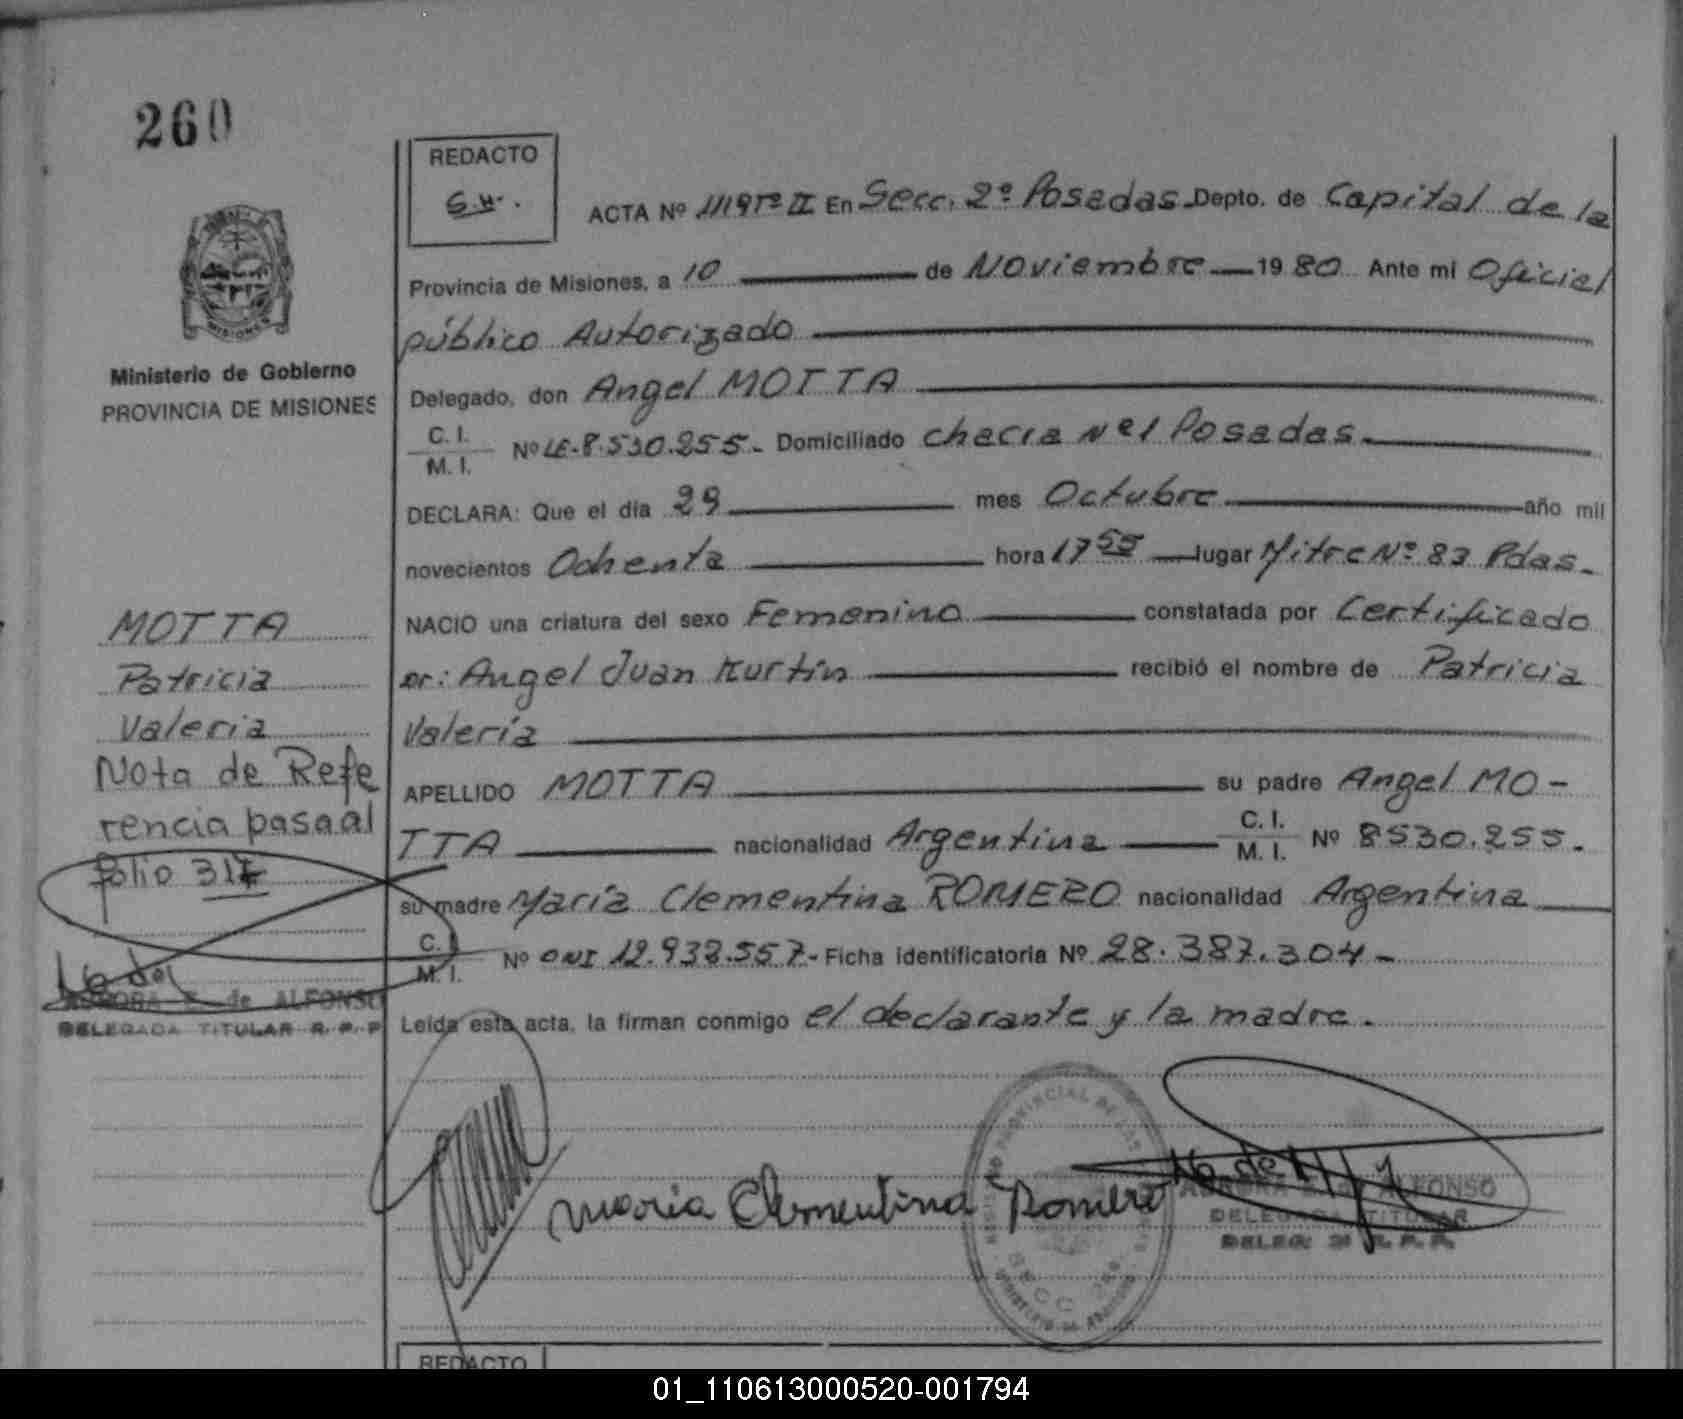 260
REDACTO
G.H.
ACTA Nº 1119 Tº II En Secc. 2º Posadas Depto. de Capital de la
Provincia de Misiones, a 10 de Noviembre 1980 Ante mi Oficial
público Autorizado
Ministerio de Gobierno
PROVINCIA DE MISIONES
Delegado, don Angel MOTTA
C. I.
M. I. Nº LE-8.530.255- Domiciliado chacra Nº 1 Posadas.
DECLARA: Que el día 29 mes Octubre año mil
novecientos Ochenta hora 17 55 lugar Mitre Nº 83 Pdas-
NACIO una criatura del sexo Femenino constatada por Certificado
Dr: Angel Juan Kurtin recibió el nombre de Patricia
Valería
APELLIDO MOTTA su padre Angel MO-
TTA nacionalidad Argentina C. I.
M. I. Nº 8530.255.
su madre María Clementina ROMERO nacionalidad Argentina
C. I.
M. I. Nº DNI 12.938.557- Ficha identificatoria Nº 28.387.304-
Leida esta acta, la firman conmigo el declarante y la madre.
MOTTA
Patricia
Valeria
Nota de Refe
rencia pasa al
folio 317
AURORA E. de ALFONSO
DELEGADA TITULAR R. P. P
Maria Clementina Romero
REGISTRO PROVINCIAL DE LAS
SECC. 2da.
AURORA E. de ALFONSO
DELEGADA TITULAR
DELEG. 2ª R. P. P.
REDACTO
01_110613000520-001794